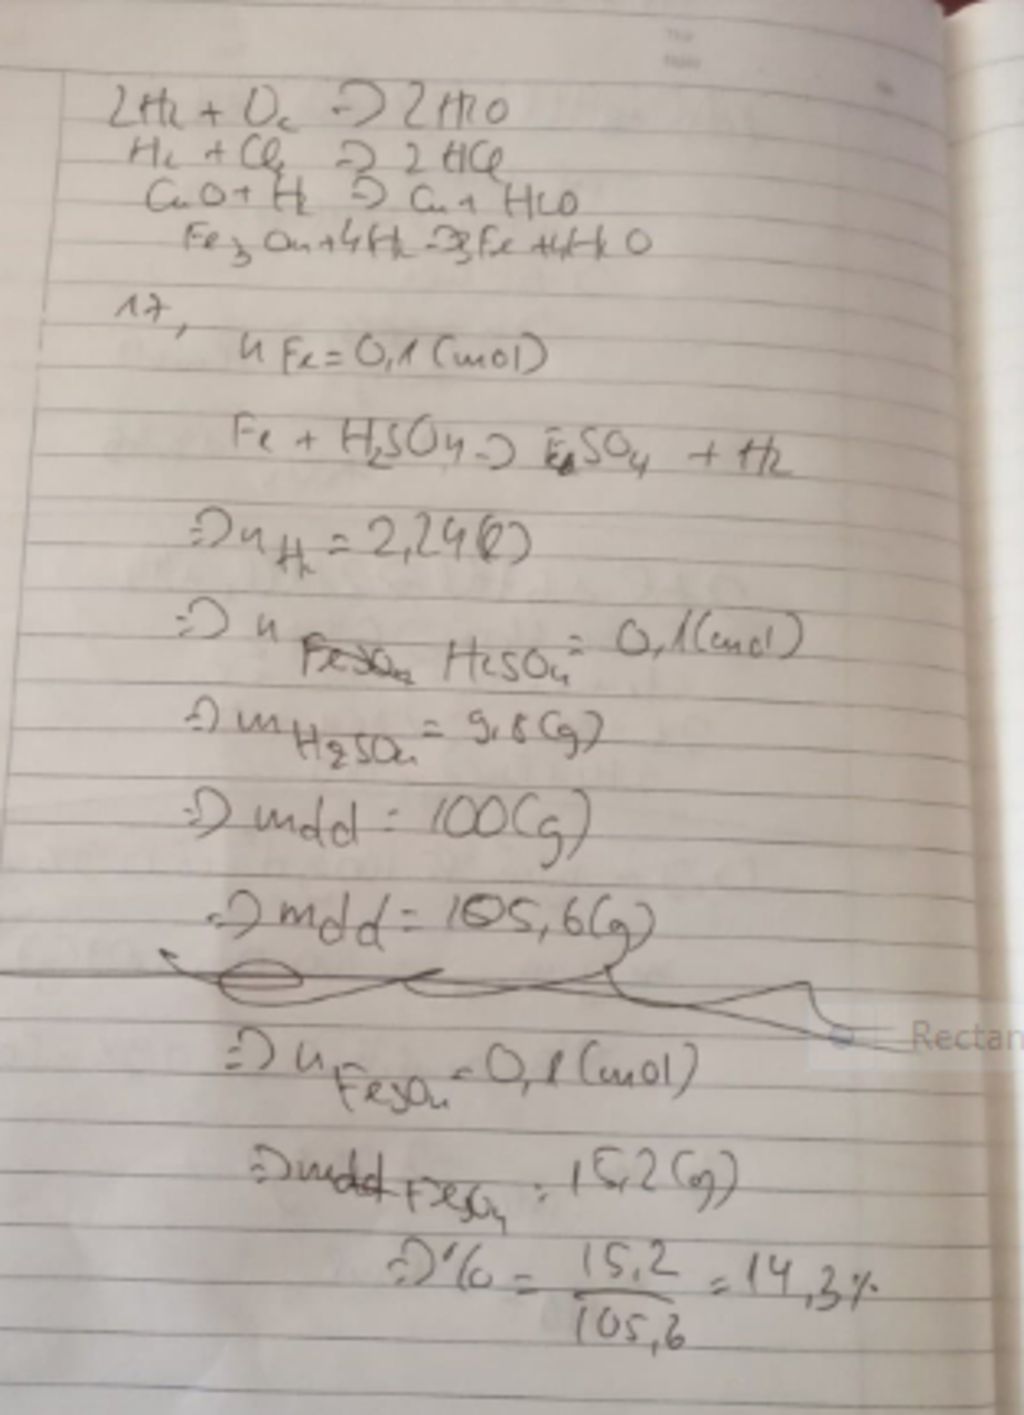 2H2 + O2 => 2H2O
H2 + Cl2 => 2HCl
CuO + H2 => Cu + H2O
Fe3O4 + 4H2 => 3Fe + 4H2O
17,
n Fe = 0,1 (mol)
Fe + H2SO4 => FeSO4 + H2
=> n H2 = 2,24(l)
=> n H2SO4 = 0,1(mol)
=> m H2SO4 = 9,8(g)
=> mdd = 100(g)
=> mdd = 105,6(g)
Rectan
=> n FeSO4 = 0,1 (mol)
=> m FeSO4 = 15,2(g)
=> % = 15,2 / 105,6 = 14,3%